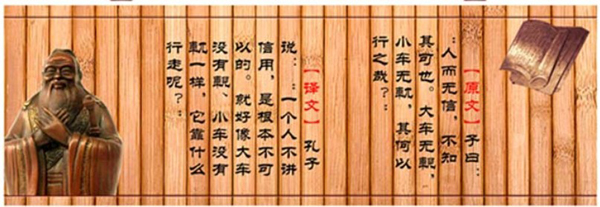 【原文】子曰：
：人而无信，不知
其可也。大车无輗，
小车无軏，其何以
行之哉？：
【译文】孔子
说：：一个人不讲
信用，是根本不可
以的。就好像大车
没有輗、小车没有
軏一样，它靠什么
行走呢？：